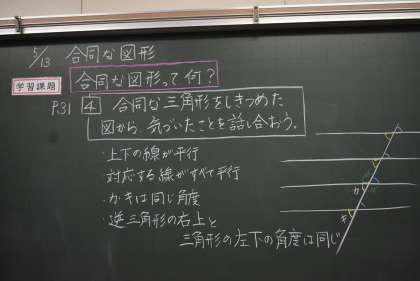 5/13 合同な図形
学習課題 合同な図形って何?
P.31 4 合同な三角形をしきつめた
図から、気づいたことを話し合おう。
・上下の線が平行
・対応する線がすべて平行
・カ、キは同じ角度
・逆三角形の右上と
三角形の左下の角度は同じ
カ
キ